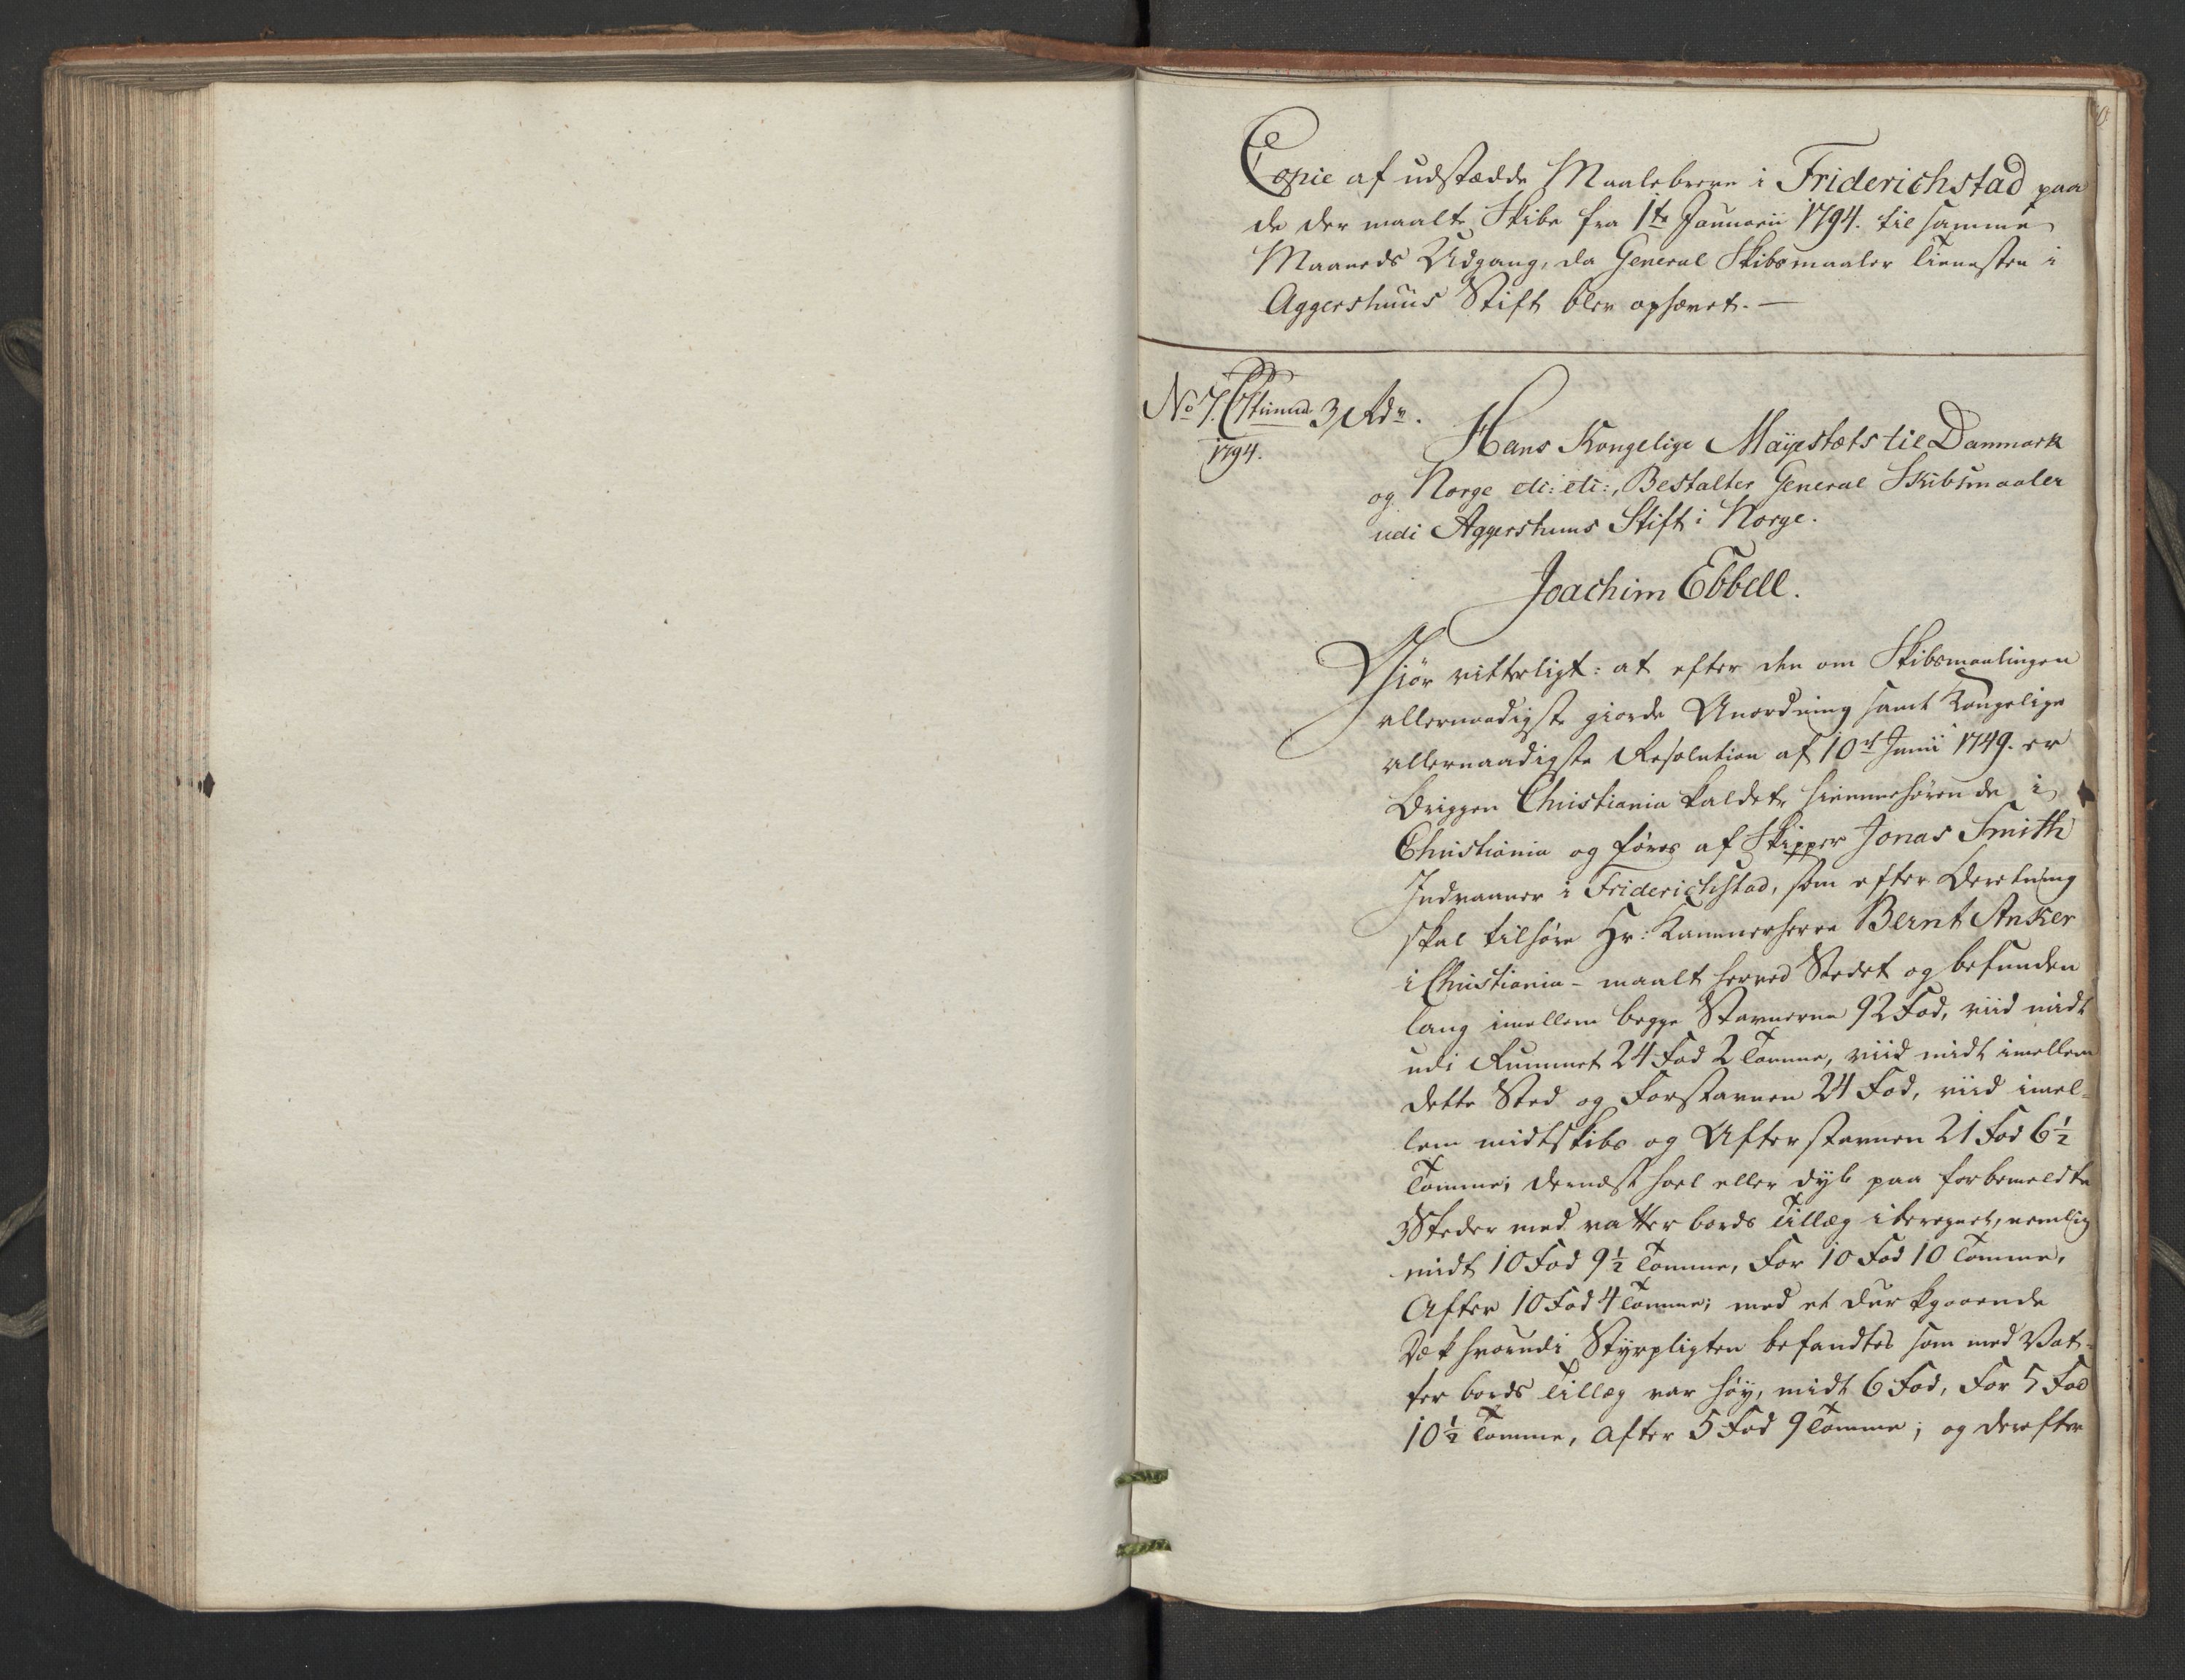 Copie af udstædde Maalebreve i Friderichstad paa
de der maalte Skibe fra 1te Januarii 1794. til samme
Maaneds Udgang, da General Skibsmaaler Tienesten i
Aggershuus Stift blev ophævet. —
No 7. 3 Rdr.
1794.
Hans Kongelige Mayestæts til Danmark
og Norge etc: etc:, Bestalter General Skibsmaaler
udi Aggershuus Stift i Norge.
Joachim Ebbell.
Giør vitterligt: at efter den om Skibsmaalingen
allernaadigste giorde Anordning samt Kongelige
allernaadigste Resolution af 10de Junii 1749. er
Briggen Christiania kaldet, hiemmehørende i
Christiania og føres af Skipper Jonas Smith
Indvaaner i Friderichstad, som efter Beretning
skal tilhøre Hr: Kammerherre Bernt Anker
i Christiania - maalt herved Stedet og befunden
lang imellem begge Stavnerne 92 Fod, viid midt
udi Rummet 24 Fod 2 Tomme, viid midt imellem
dette Sted og Forstavnen 24 Fod, viid imel-
lem midtskibs og Afterstavnen 21 Fod 6 1/2
Tomme; dernæst hoel eller dyb paa forbemeldte
3 Steder med vatterbords Tillæg iberegnet, nemlig
midt 10 Fod 9 1/2 Tomme, For 10 Fod 10 Tomme,
After 10 Fod 4 Tomme; med et durkgaaende
Dæk hvorudi Styrpligten befandtes som med Vat-
terbords Tillæg var høy, midt 6 Fod, For 5 Fod
10 1/2 Tomme, After 5 Fod 9 Tomme; og derefter